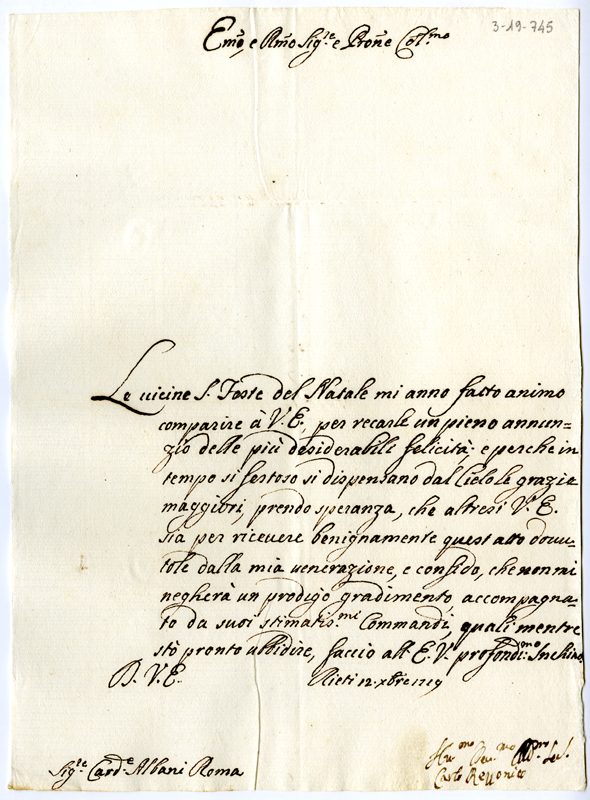 3-19-745
Emo, e Rmo Sigre e Prone Colmo
Le vicine S. Feste del Natale mi anno fatto animo
comparire à V. E., per recarle un pieno annun=
zio delle più desiderabili felicità; e perche in
tempo si festoso si dispensano dal Cielo le grazie
maggiori, prendo speranza, che altresi V. E.
sia per ricevere benignamente quest atto dovu=
tole dalla mia venerazione, e confido, che non mi
negherà un prodigo gradimento accompagna=
to da suoi stimatis.mi Commandi, quali mentre
stò pronto ubbidire, faccio all E. V. profondi:mo Inchino
D. V. E. Rieti 12. xbre 1719
Sigre Carde Albani Roma
Carlo Rezzonico